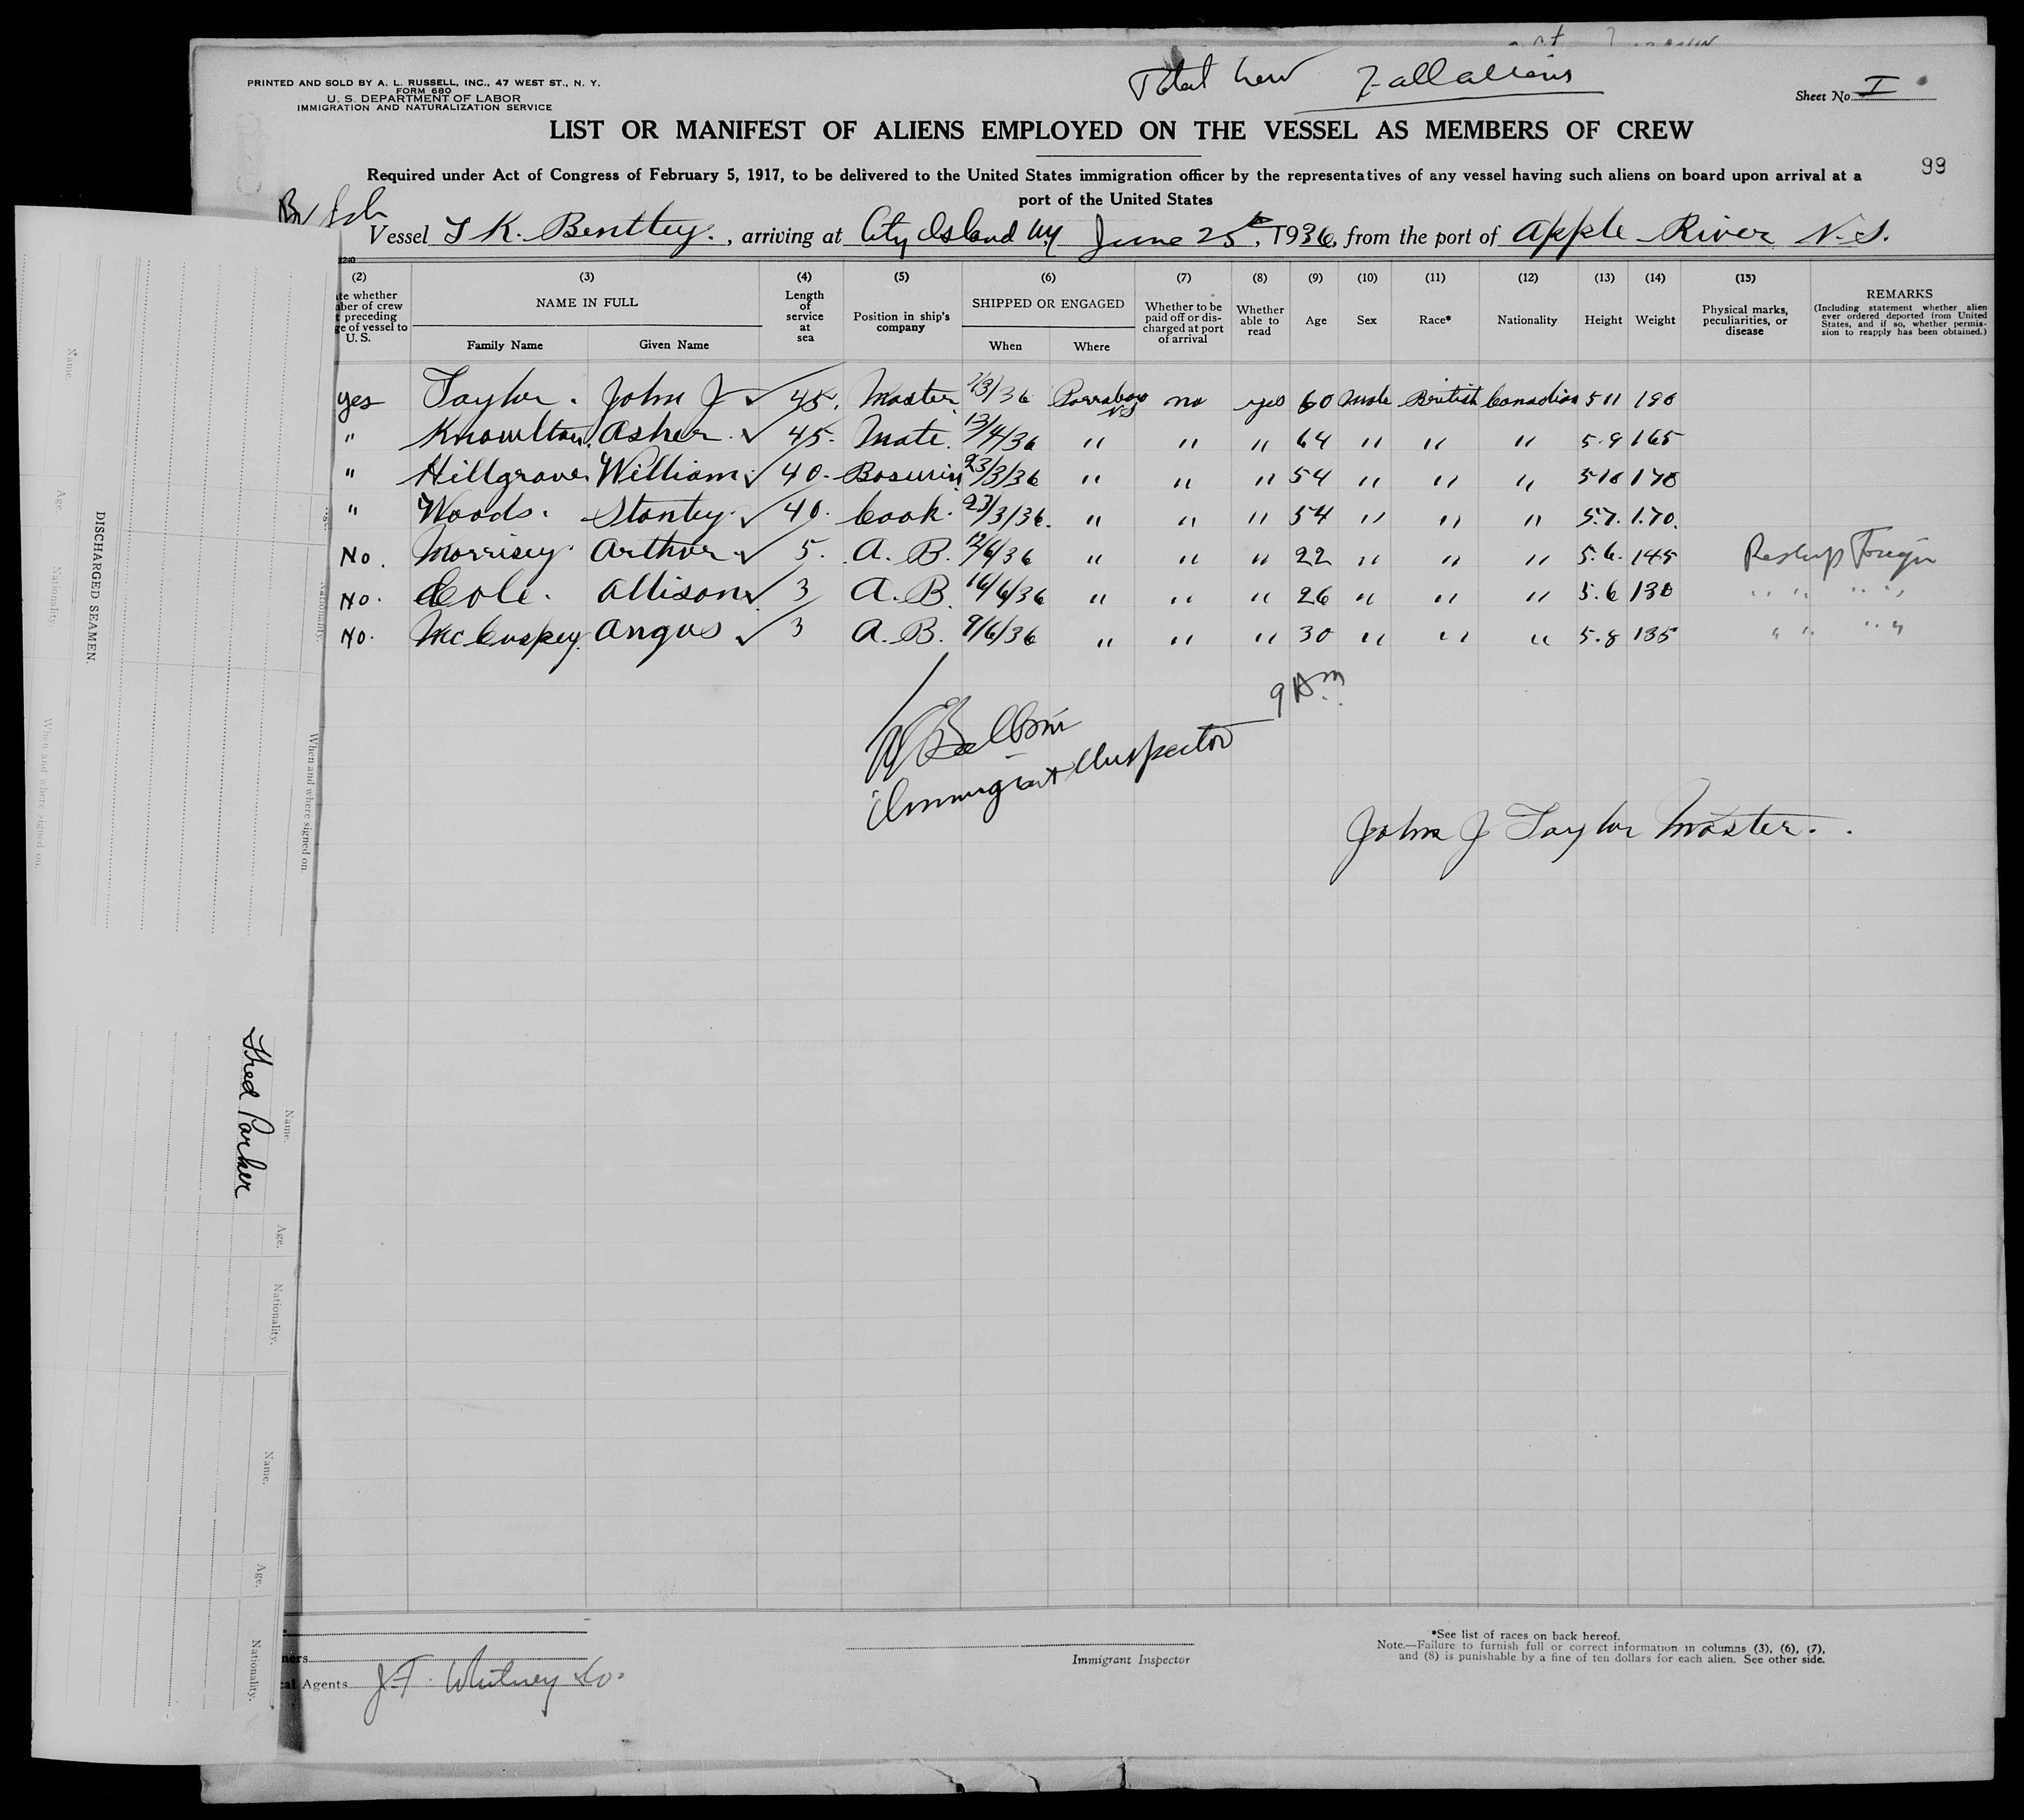 Total Crew 7 all aliens
PRINTED AND SOLD BY A. L. RUSSELL, INC., 47 WEST ST., N. Y.
FORM 680
U. S. DEPARTMENT OF LABOR
IMMIGRATION AND NATURALIZATION SERVICE
Sheet No. I
LIST OR MANIFEST OF ALIENS EMPLOYED ON THE VESSEL AS MEMBERS OF CREW
99
Required under Act of Congress of February 5, 1917, to be delivered to the United States immigration officer by the representatives of any vessel having such aliens on board upon arrival at a
port of the United States
Br Sch
Vessel T K. Bentley., arriving at City Island NY June 25th, 1936, from the port of Apple River N.S.
(2) (3) (4) (5) (6) (7) (8) (9) (10) (11) (12) (13) (14) (15)
te whether
ber of crew
t preceding
ge of vessel to
U. S.
NAME IN FULL
Family Name Given Name
Length
of
service
at
sea
Position in ship's
company
SHIPPED OR ENGAGED
When Where
Whether to be
paid off or dis-
charged at port
of arrival
Whether
able to
read
Age Sex Race* Nationality Height Weight
Physical marks,
peculiarities, or
disease
REMARKS
(Including statement whether alien
ever ordered deported from United
States, and if so, whether permis-
sion to reapply has been obtained.)
yes Taylor. John J ✓ 45. Master /3/36 Parrsboro NS no yes 60 Male British Canadian 5 11 190
" Knowlton. Asher. ✓ 45. Mate. 13/4/36 " " " 64 " " " 5.9 165
" Hillgrove. William ✓ 40. Bosun 23/3/36 " " " 54 " " " 5 10 170
" Woods. Stanley. ✓ 40. Cook. 23/3/36. " " " 54 " " " 5.7. 170.
No. Morrisey. Arthur ✓ 5. A. B. 12/6/36 " " " 22 " " " 5.6. 145 Reship Foreign
No. Cole. Allison ✓ 3 A. B. 16/6/36 " " " 26 " " " 5.6 130 " " " "
No. McCuspey. Angus ✓ 3 A. B. 9/6/36 " " " 30 " " " 5.8 135 " " " "
9 AM
Immigrant Inspector
John J Taylor Master.
DISCHARGED SEAMEN.
Name. Age. Nationality. When and where signed on.
Nationality. When and where signed on.
Name. Age. Nationality.
Fred Parker
Name. Age. Nationality.
ners
cal Agents J. T. Whitney & Co.
Immigrant Inspector
*See list of races on back hereof.
Note.—Failure to furnish full or correct information in columns (3), (6), (7),
and (8) is punishable by a fine of ten dollars for each alien. See other side.